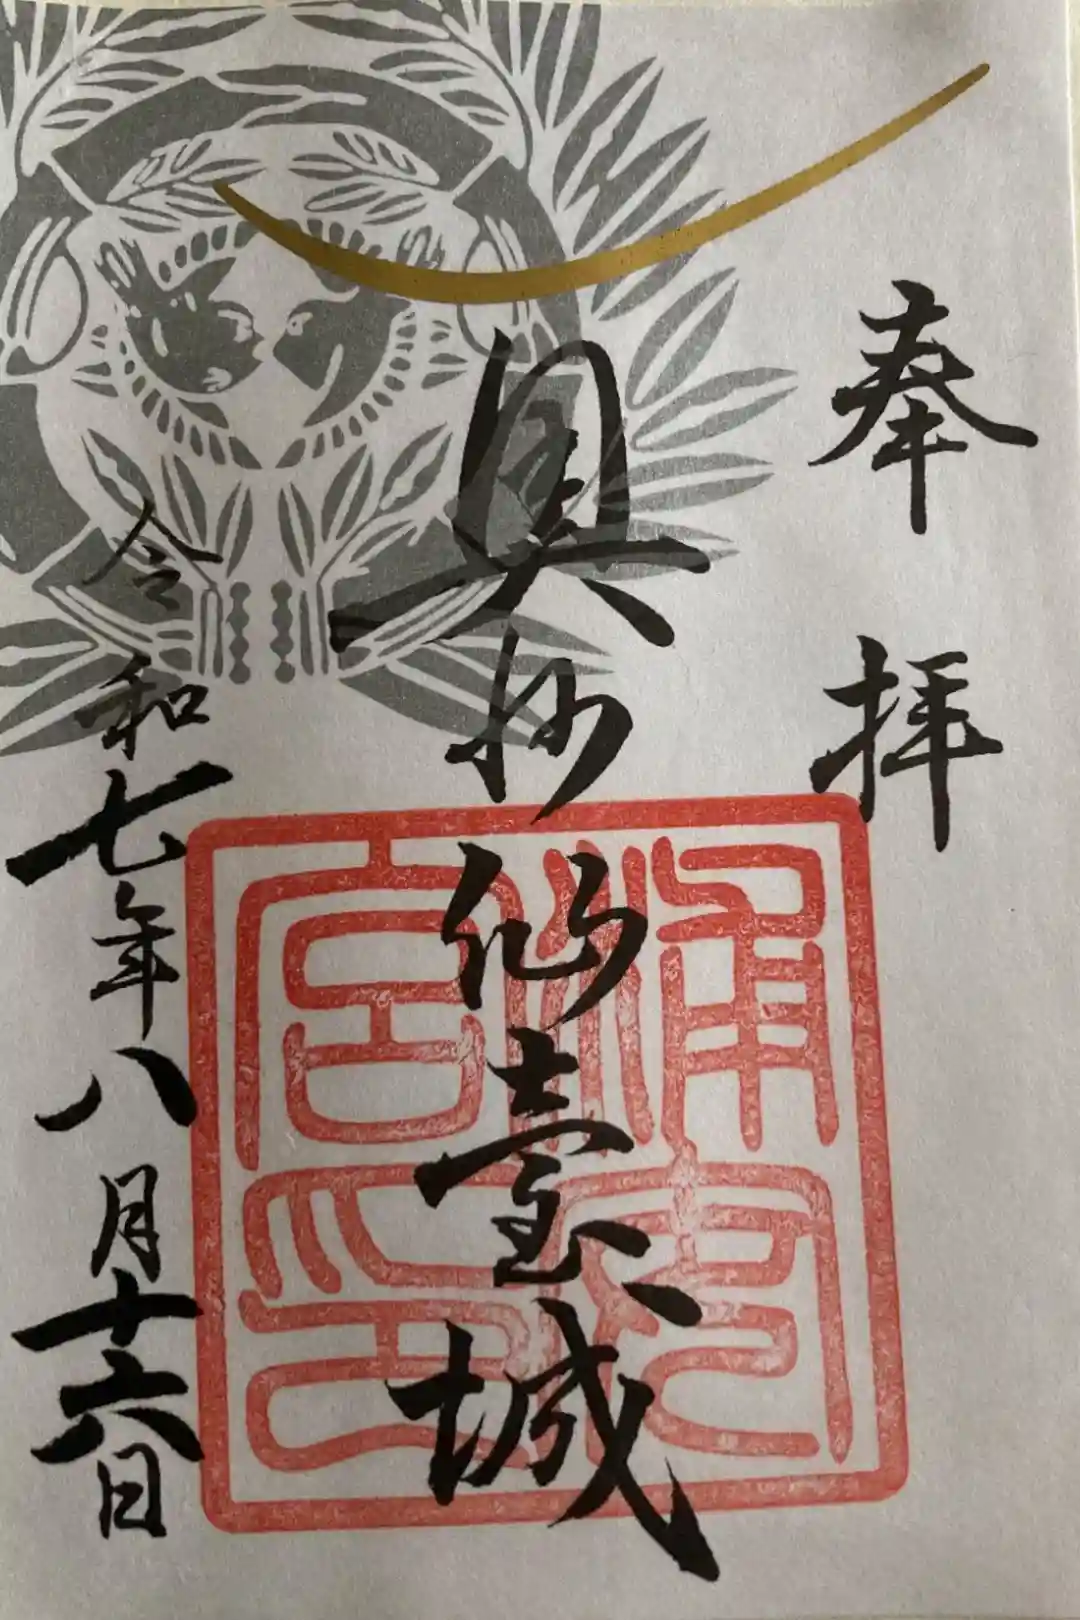 奉拝
奥州仙臺城
令和七年八月十六日
浦安
宮印